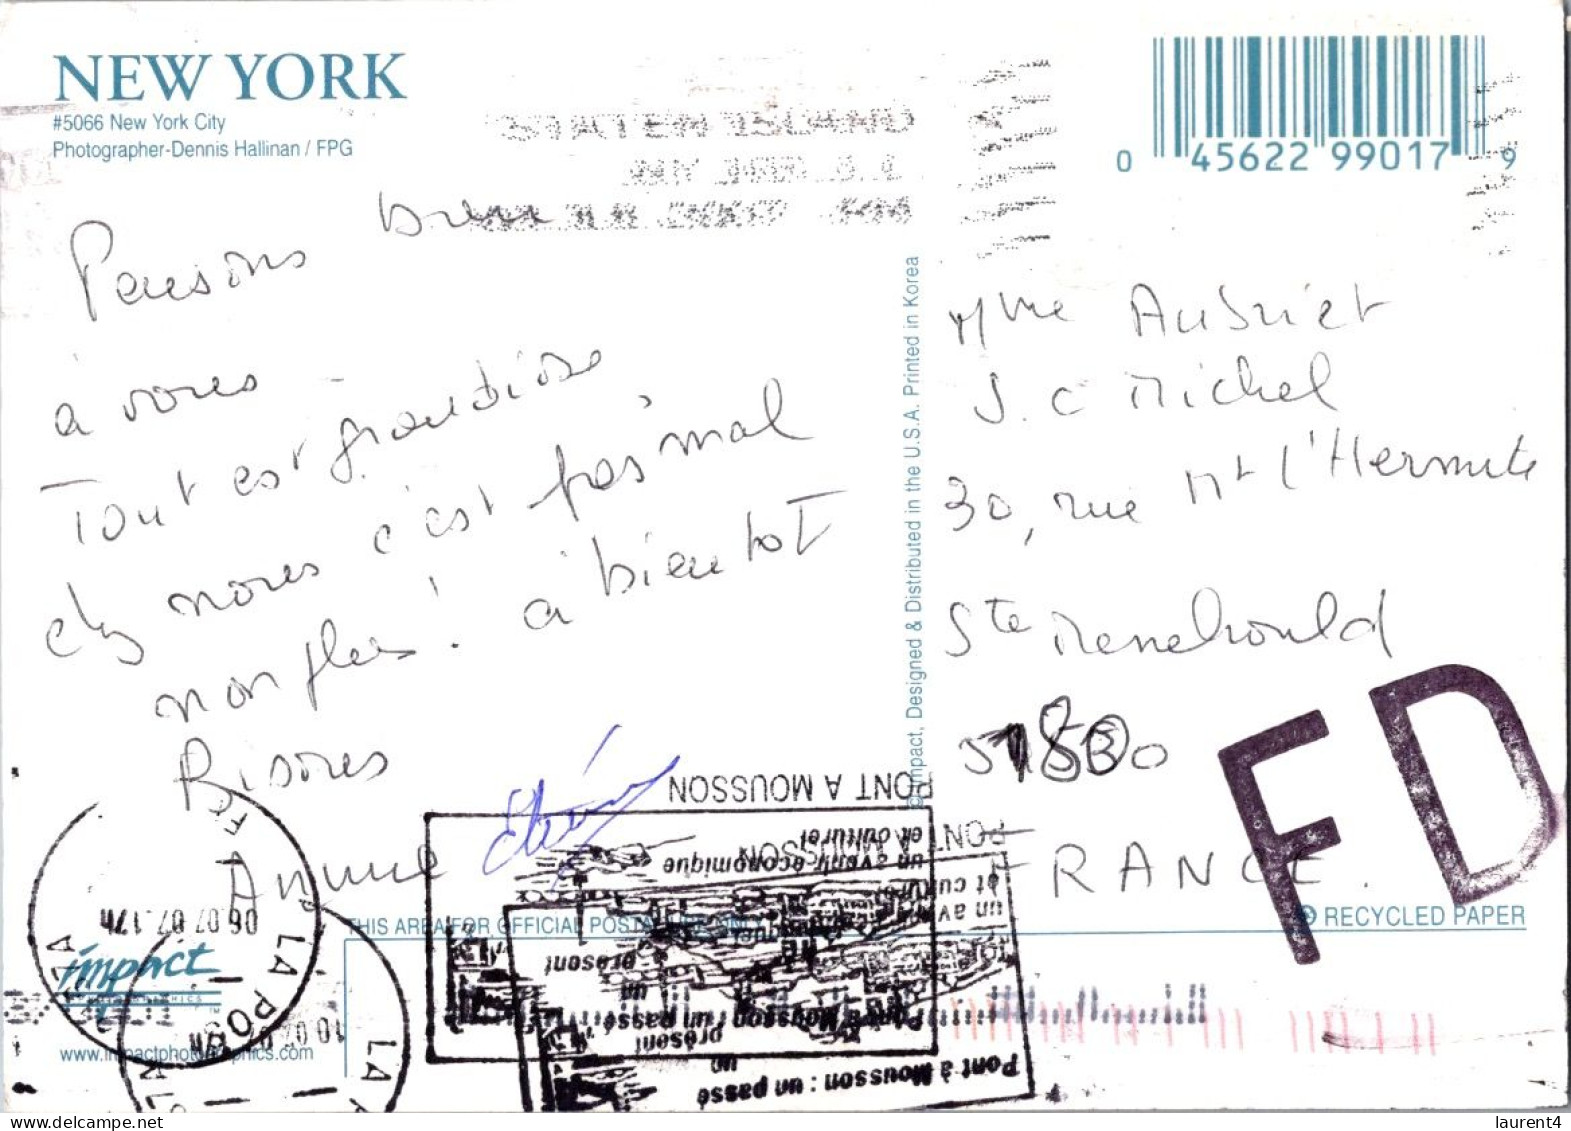 NEW YORK
#5066 New York City
Photographer-Dennis Hallinan / FPG
STATEN ISLAND
0 45622 99017 9
Pensons bien
à vous
Tout est grandiose
chez nous c'est pas mal
non plus ! à bientôt
Bisous
Annie
© Impact, Designed & Distributed in the U.S.A. Printed in Korea
Mme Aubriet
J.C Michel
30, rue Mt l'Hermite
Ste Menehould
FRANCE.
FD
PONT A MOUSSON
PONT A MOUSSON
un avenir économique
et culturel
un passé
présent
Pont à Mousson : un passé
un
présent
06.07.07.17h
LA POSTE
THIS AREA FOR OFFICIAL POSTAL USE ONLY
RECYCLED PAPER
impact
www.impactphotographics.com
laurent4
delcampe.net